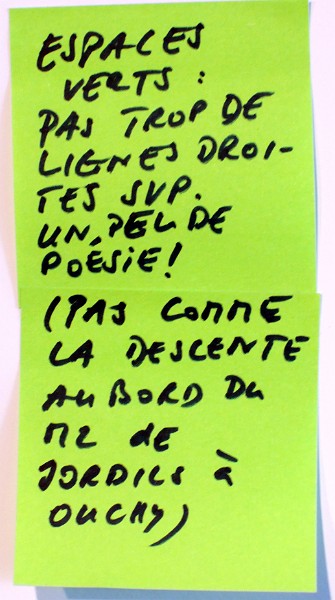 ESPACES
VERTS :
PAS TROP DE
LIGNES DROI-
TES SVP.
UN PEU DE
POÈSIE!
(PAS COMME
LA DESCENTE
AU BORD DU
M2 dE
JORDILS à
OUCHY)